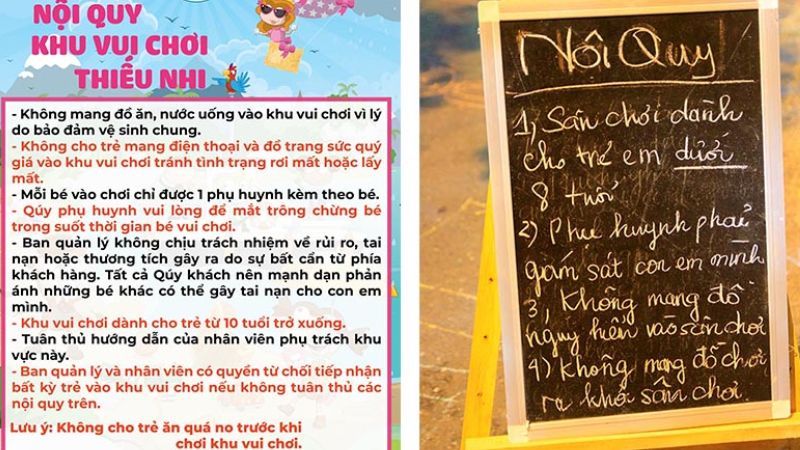 NỘI QUY
KHU VUI CHƠI
THIẾU NHI
- Không mang đồ ăn, nước uống vào khu vui chơi vì lý
do bảo đảm vệ sinh chung.
- Không cho trẻ mang điện thoại và đồ trang sức quý
giá vào khu vui chơi tránh tình trạng rơi mất hoặc lấy
mất.
- Mỗi bé vào chơi chỉ được 1 phụ huynh kèm theo bé.
- Qúy phụ huynh vui lòng để mắt trông chừng bé
trong suốt thời gian bé vui chơi.
- Ban quản lý không chịu trách nhiệm về rủi ro, tai
nạn hoặc thương tích gây ra do sự bất cẩn từ phía
khách hàng. Tất cả Qúy khách nên mạnh dạn phản
ánh những bé khác có thể gây tai nạn cho con em
mình.
- Khu vui chơi dành cho trẻ từ 10 tuổi trở xuống.
- Tuân thủ hướng dẫn của nhân viên phụ trách khu
vực này.
- Ban quản lý và nhân viên có quyền từ chối tiếp nhận
bất kỳ trẻ vào khu vui chơi nếu không tuân thủ các
nội quy trên.
Lưu ý: Không cho trẻ ăn quá no trước khi
chơi khu vui chơi.
Nôi Quy
1, Sân chơi dành
cho trẻ em dưới
8 tuổi
2) Phụ huynh phải
giám sát con em mình
3, Không mang đồ
nguy hiển vào sân chơi
4) Không mang đồ chơi
ra khỏi sân chơi.